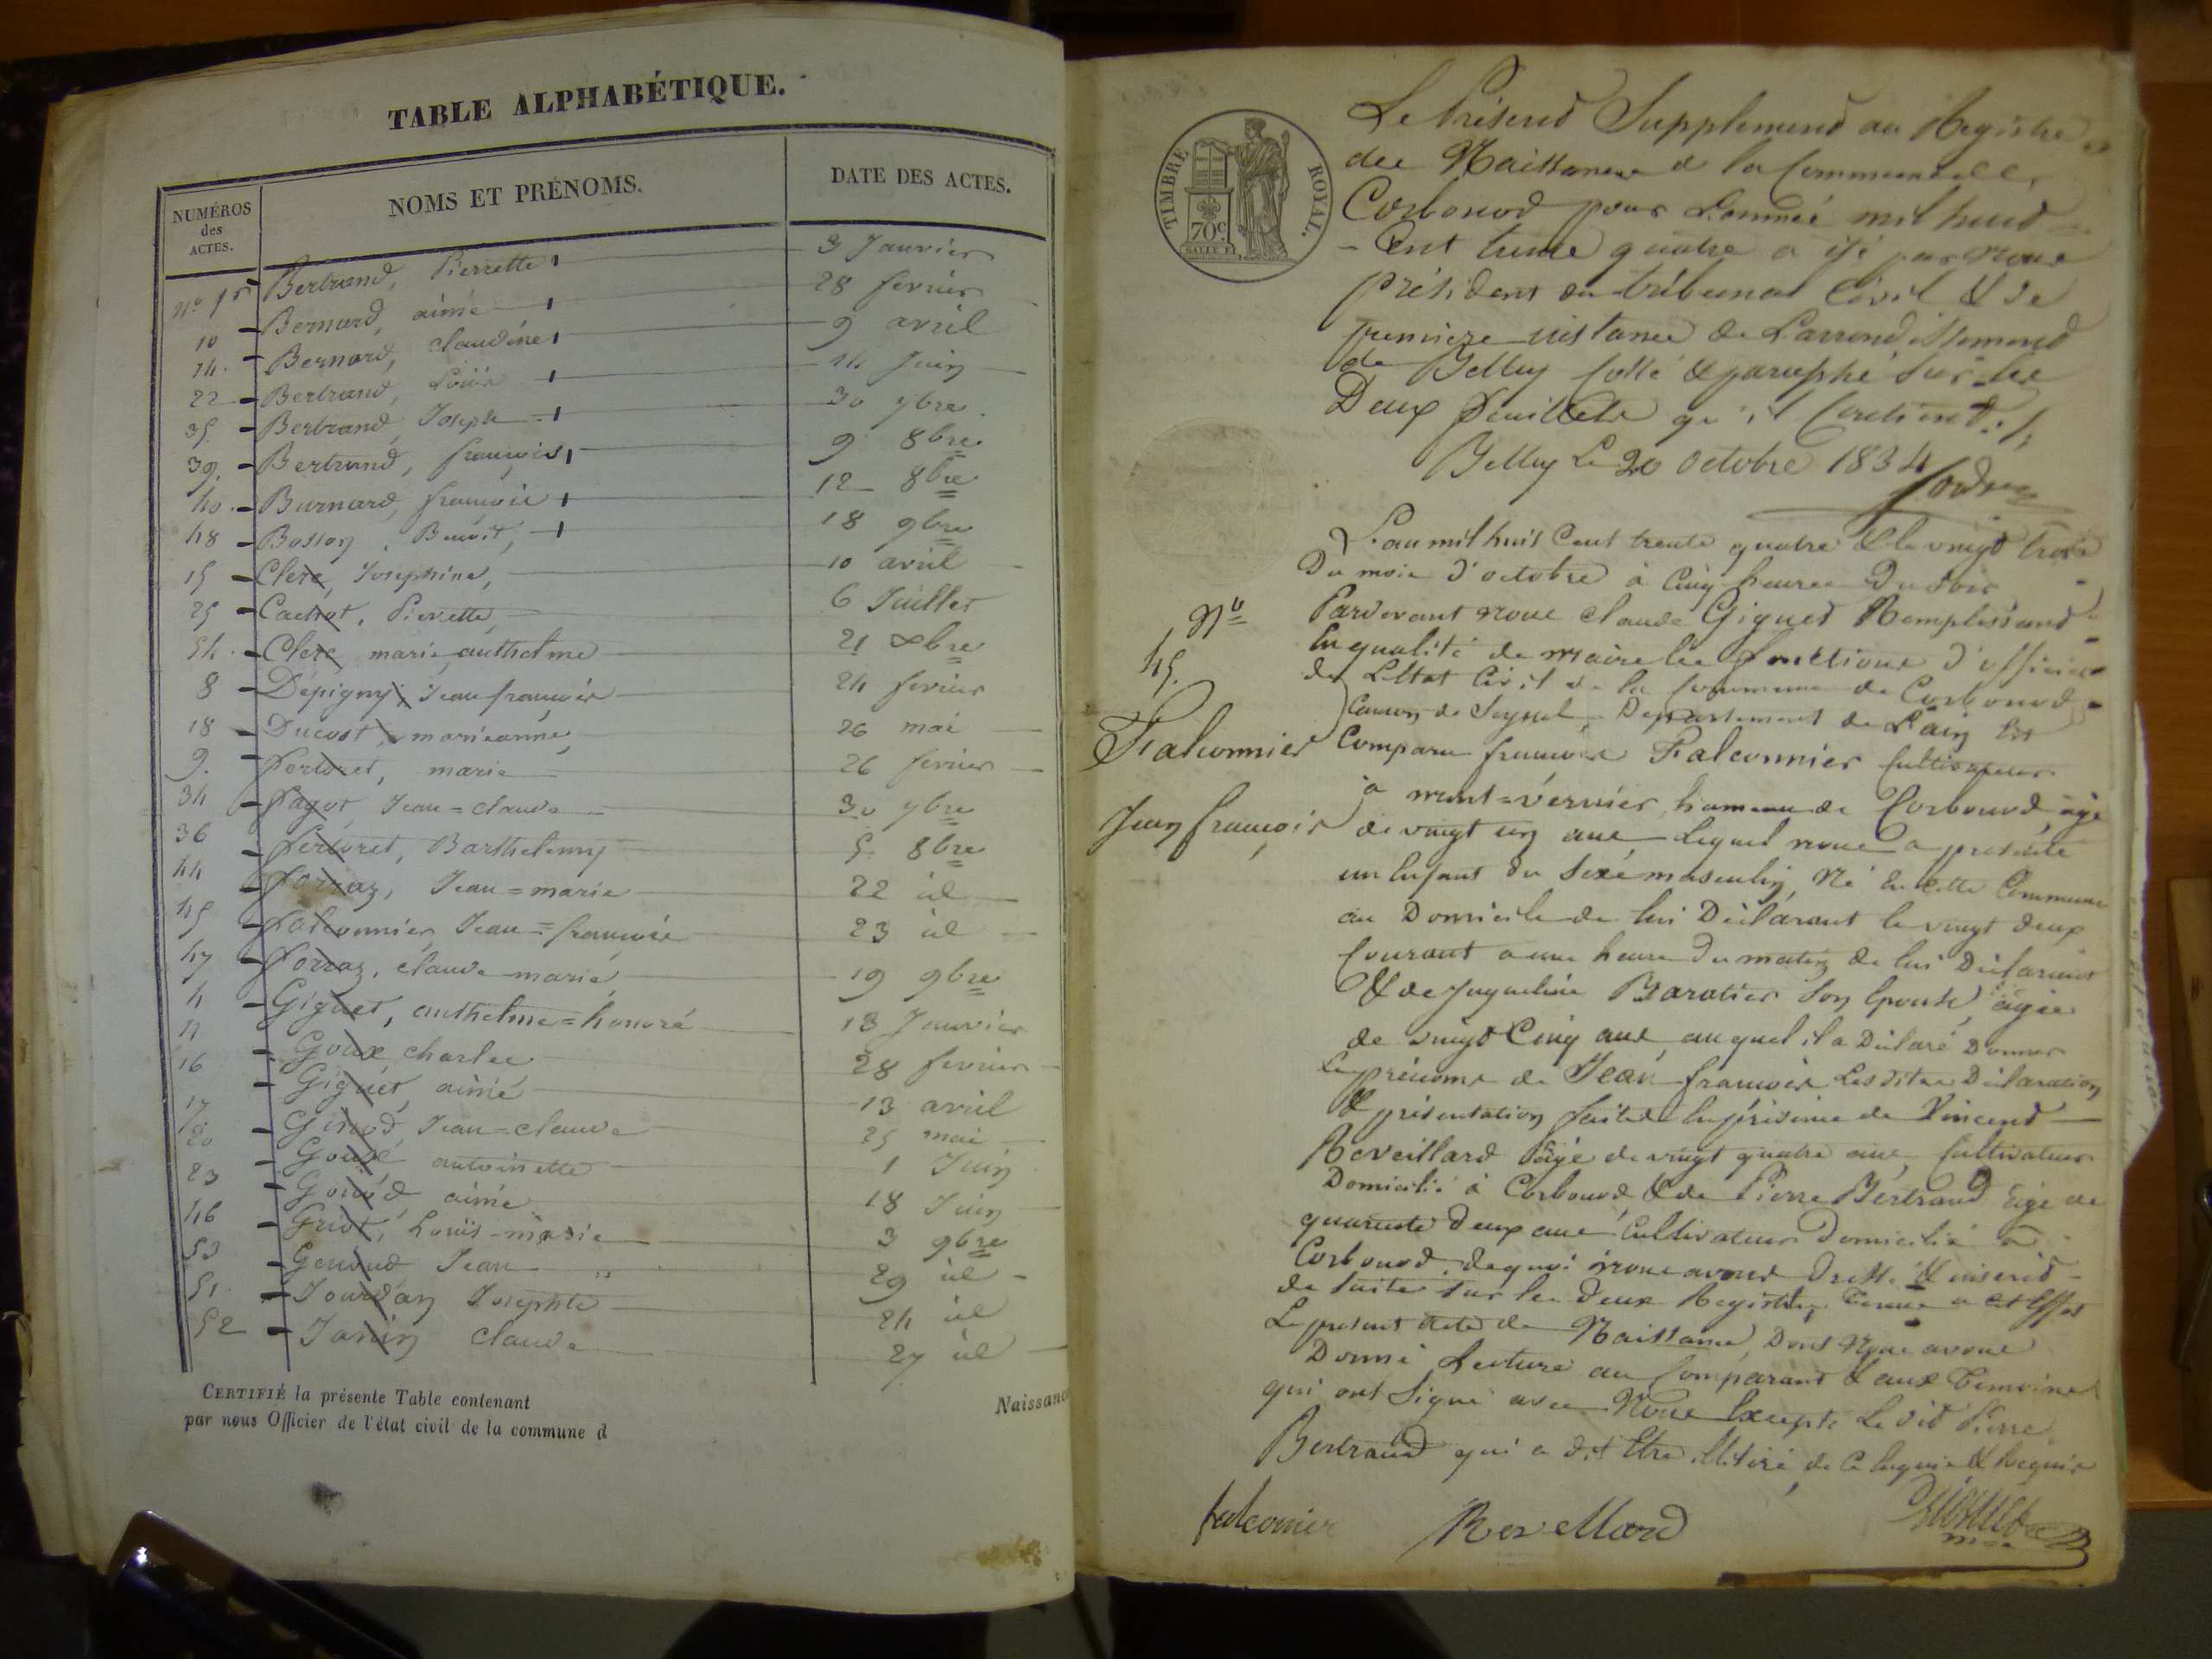 TABLE ALPHABÉTIQUE.
NUMÉROS des ACTES.
NOMS ET PRÉNOMS.
DATE DES ACTES.
No 1er Bertrand, Pierrette 3 Janvier
10 Bernard, aimé 28 fevrier
14. Bernard, claudine 9 avril
22 Bertrand, Louïs 14 Juin
35 Bertrand Joseph 30 7bre.
39. Bertrand, françois 9 8bre
40. Burnard, françois 12 8bre
48 Bosson Benoit, 18 9bre
15 Clerc, Josephine, 10 avril
25 Cachat, Pierrette, 6 Juillet
54. Clerc marie anthelme 21 Xbre
8 Dépigny, Jean françois 24 fevrier
18 Ducost, marieanne, 26 mai
9. ferloret, marie 26 fevrier
34 fagot, Jean=claude 30 7bre
36 ferloret, Barthelemy 5 8bre
44 forraz, Jean=marie 22 id
45 falconnier Jean=françois 23 id
47 forraz, claude marie, 19 9bre
4 Giguet, anthelme=honoré 13 Janvier
11 Goux charles 28 fevrier
16 Giguet, aimé 13 avril
17 Ginod Jean=claude 25 mai
20 Goux antoinette 1 Juin
23 aimé 18 Juin
46 Griot, Louïs-marie 3 9bre
53 Jean 29 id
51. Jourdan Josephte 24 id
52 Janin claude 27 id
CERTIFIÉ la présente Table contenant
Naissanc
par nous Officier de l'état civil de la commune d
TIMBRE ROYAL.
70c
Le Présend Supplemend au Registre
des Naissances de la Commune de
Corbonod pour L'année mil huid
-Cent trente quatre a été par nous
président du tribunal Civil & de
premiere instance de L'arrondissemend
de Belley Cotté & paraphé sur les
Deux feuillets qu'il Contient./.
Belley Le 20 octobre 1834
L'an mil huit Cent trente quatre & le vingt trois
Du mois d'octobre à Cinq heures Du soir
Pardevant nous claude Giguet Remplissand
En qualité de maire les fonctions d'officier
de L'Etat Civil de la Commune de Corbonod
Canton de Seyssel Departement de L'ain Est
No 45.
Falconnier
Jean françois
Comparu françois Falconnier Cultivateur
à mont=vérnier, hameau de Corbonod, agé
de vingt un ans Lequel nous a presenté
un Enfant du Sexe masculin, Né En cette Commune
au Domicile de lui Déclarant le vingt deux
Courant a une heure du matin de lui Déclarant
& de Jaqueline Baratier son Epouse, agée
de vingt Cinq ans, auquel il a Déclaré Donner
Les prénoms de Jean françois Lesdites Déclaration
& présentation faites En présence de Vincend
Reveillard agé de vingt quatre ans, Cultivateur
Domicilié à Corbonod, & de Pierre Bertrand agé de
quarante deux ans Cultivateur Domicilié à
Corbonod, de quoi nous avons Dressé & inserid
de suite sur les Deux Registres Tenus a cet Effet
Le present acte de Naissance, Dont Nous avons
Donné Lecture au Comparant & aux Temoins
qui ont Signé avec Nous Excepté Le dit Pierre
Bertrand qui a dit Etre illitéré, de ce Enquis & Requis
falconnier Revellard